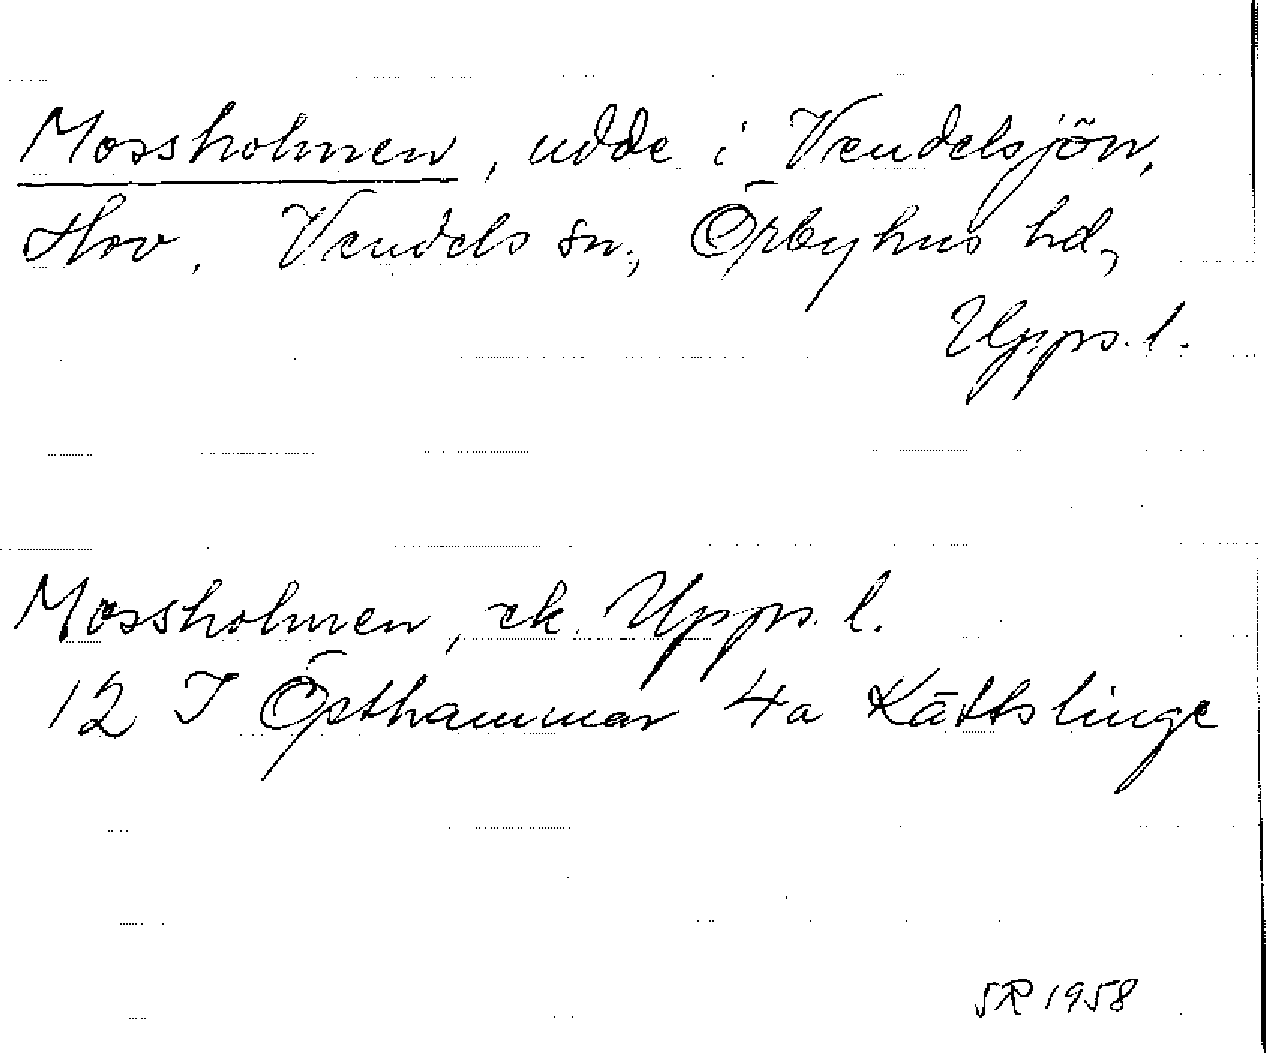 Mossholmen, udde i Vendelsjön,
Hov. Vendels sn., Örbyhus hd,
Upps. l.
Mossholmen, ek. Upps. l.
12 I Östhammar 4a Kättslinge
SR 1958